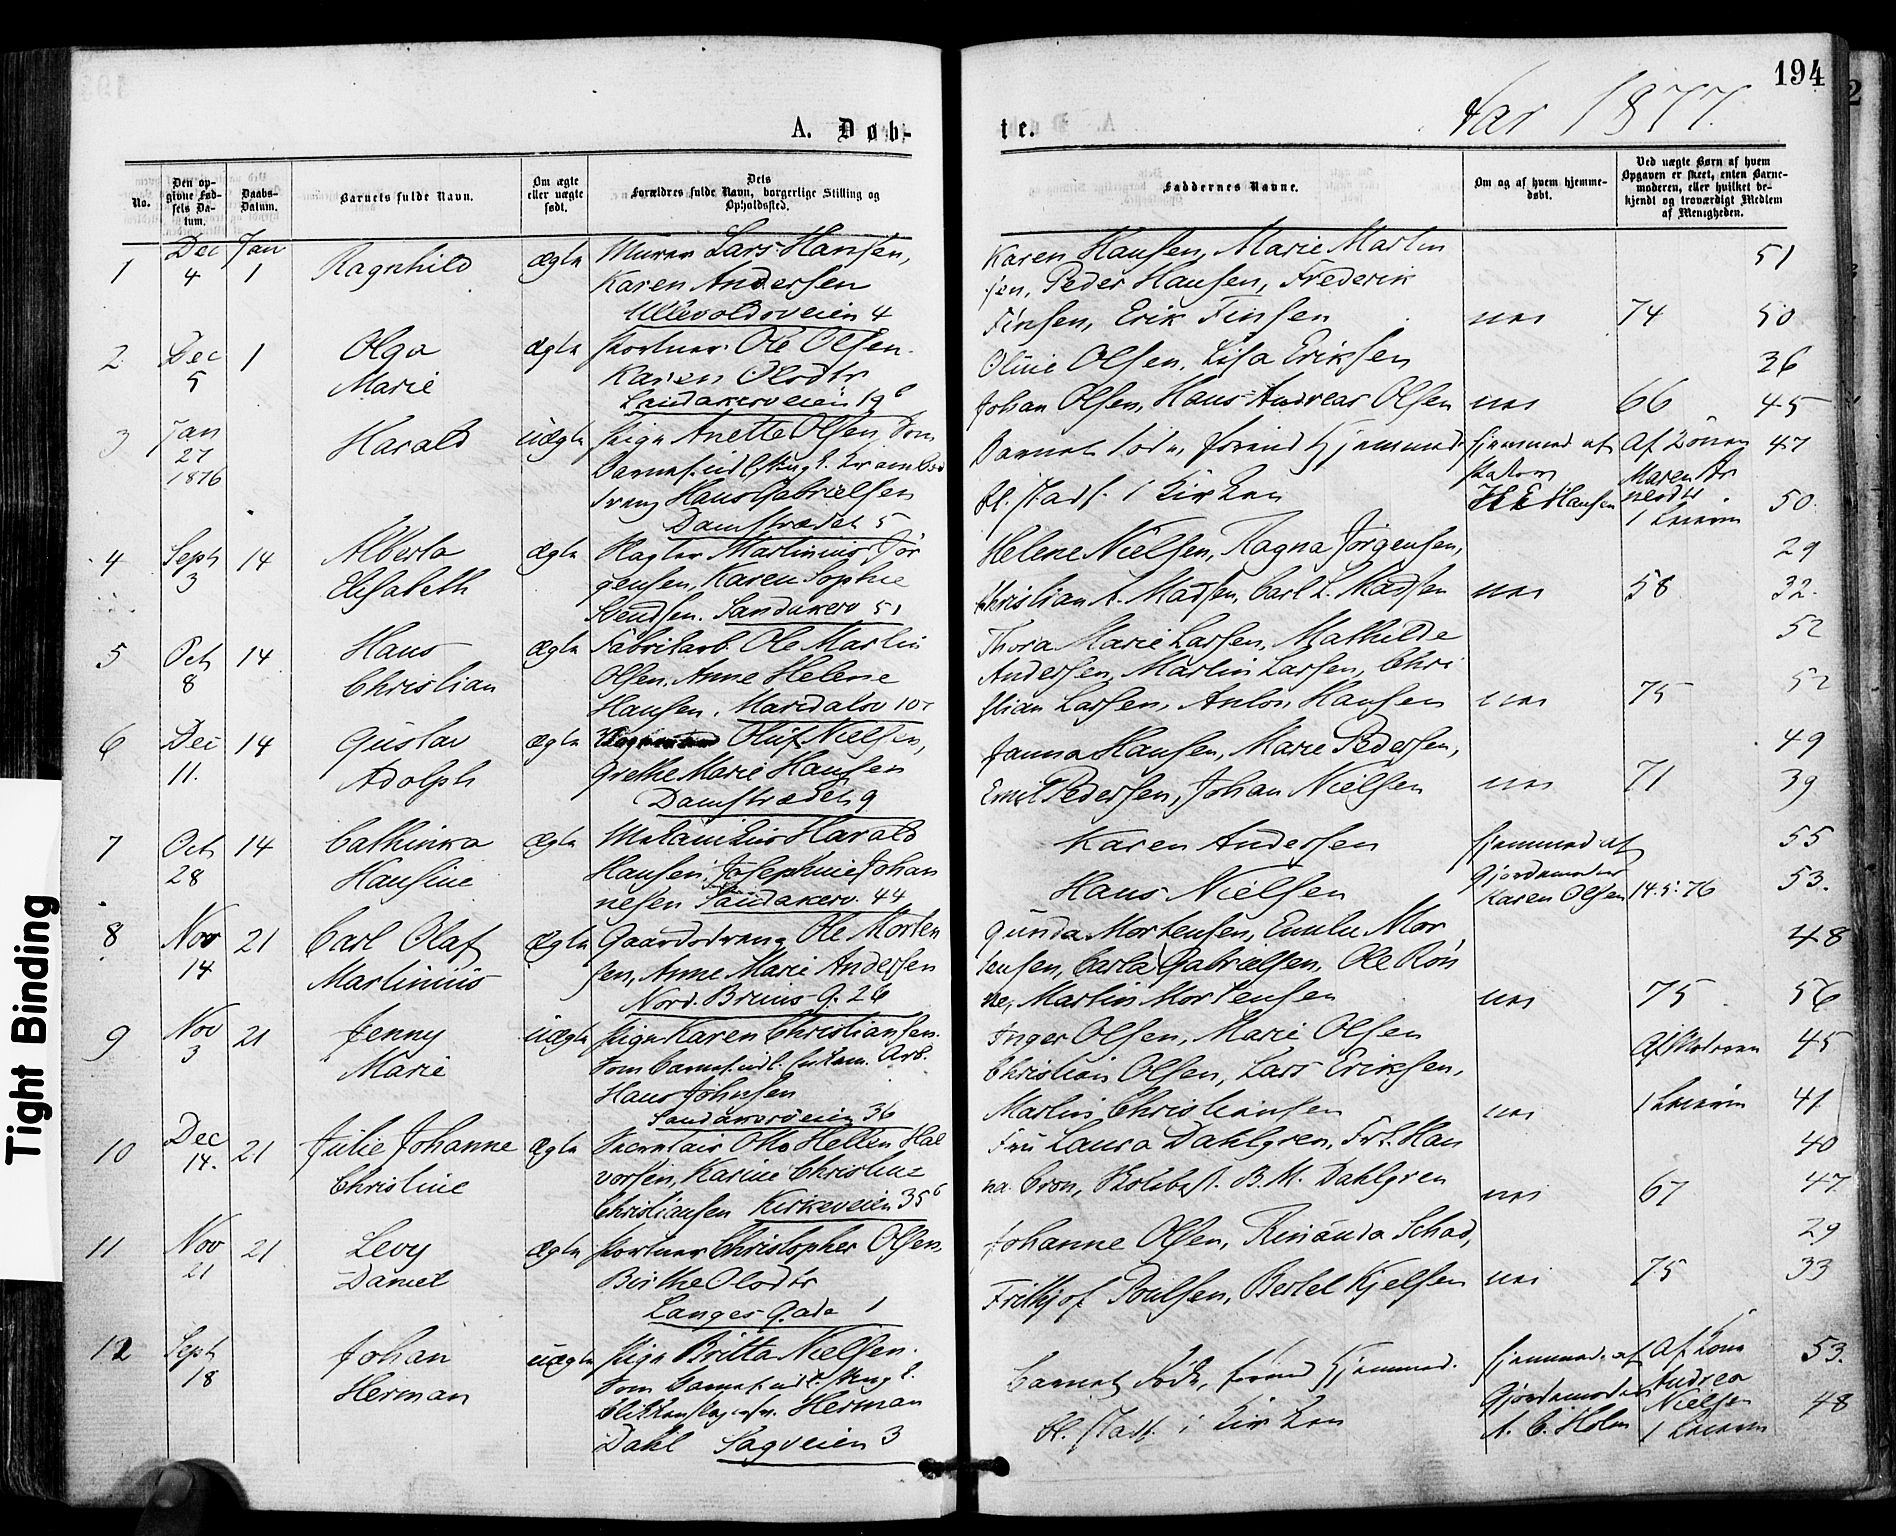 194
Aar 1877.
A. Døb-
te.
No.
Den op-
givne Fød-
sels Da-
tum.
Daabs-
Datum.
Barnets fulde Navn.
Om ægte
eller uægte
født.
Dets
Forældres fulde Navn, borgerlige Stilling og
Opholdssted.
Faddernes Navne.
Om og af hvem hjemme-
døbt.
Ved uægte Børn af hvem
Opgaven er skeet, enten Barne-
moderen, eller hvilket be-
kjendt og troværdigt Medlem
af Menigheden.
1 Dec 4 Jan 1 Ragnhild ægte Murer Lars Hansen,
Karen Andersen
Ullevoldsveien 4
Karen Hansen, Marie Martin
sen, Peder Hansen, Frederik
Finsen, Erik Finsen 74 51 50
2 Dec 5 1 Olga
Marie ægte Portner Ole Olsen.
Karen Olsdtr
Sandakerveien 19 b
Oline Olsen, Lisa Eriksen
Johan Olsen, Hans Andreas Olsen 66 36 45
3 Jan 27 1876 Harald uægte Pige Anette Olsen, Som
Barnef. udl. Ungk.
Hans Gabrielsen
Damstrædet 5
Barnet døde, førend Hjemmed.
bl. stadf. i Kirken
Hjemmed. af
Hansen 47 50
4 Sept 3 14 Alberta
Elisabeth ægte Slagter Martinius Jør
gensen, Karen Sophie
Svendsen. Sandakerv 51
Helene Nielsen, Ragna Jørgensen,
Christian A. Madsen, Carl L. Madsen 58 29 32.
5 Oct 8 14 Hans
Christian ægte Fabrikarb. Ole Martin
Olsen, Anne Helene
Hansen. Maridalsv 107
Thora Marie Larsen, Mathilde
Andersen, Martin Larsen, Chri
stian Larsen, Anton Hansen 75 52 52
6 Dec 11. 14 Gustav
Adolph ægte Oluf Nielsen,
Grethe Marie Hansen
Damstrædet 9
Janna Hansen, Marie Pedersen,
Emil Pedersen, Johan Nielsen 71 49 39
7 Oct 28 14 Cathinka
Hansine ægte Mekanikus Harald
Hansen, Josephine Johan
nesen Sandakerv. 44
Karen Andersen
Hans Nielsen
Hjemmed. af
Gjordemoder
Karen Olsen 14.5.76 55 53.
8 Nov 14 21 Carl Olaf
Martinius ægte Gaardsdreng Ole Morten
sen, Anne Marie Andersen
Nord. Bruns G. 26
Gunda Mortensen, Emilie Mor
tensen, Carla Gabrielsen, Ole Røn
ne, Martin Mortensen 75 48 56
9 Nov 3 21 Jenny
Marie uægte Pige Karen Christiansen.
Som Barnef. udl. Arb.
Hans Johnsen
Sandakerveien 36
Inger Olsen, Marie Olsen
Christian Olsen, Lars Eriksen,
Martin Christiansen Af Moderen 45 41
10 Dec 14. 21 Julie Johanne
Christine ægte Secretair Otto Hellen Hal
vorsen, Karine Christine
Christiansen Kirkeveien 35 b
Fru Laura Dahlgren, Fr. L. Han
na Cron, Skolebest. B. M. Dahlgren 67 40 47
11 Nov 21 21 Levy
Daniel ægte Portner Christopher Olsen,
Birthe Olsdtr
Langes Gade 1
Johanne Olsen, Rinanda Schad,
Frithjof Poulsen, Bertel Kjelsen 75 29 33
12 Sept 18 Johan
Herman uægte Pige Britta Nielsen.
Som Barnef. udl. Ungk.
Herman
Dahl Sagveien 3
Barnet døde, førend Hjemmed.
bl. stadf. i Kirken
Hjemmed. af
Gjordemoder
A. C. Holm
Andrea
Nielsen 53. 48
Tight Binding